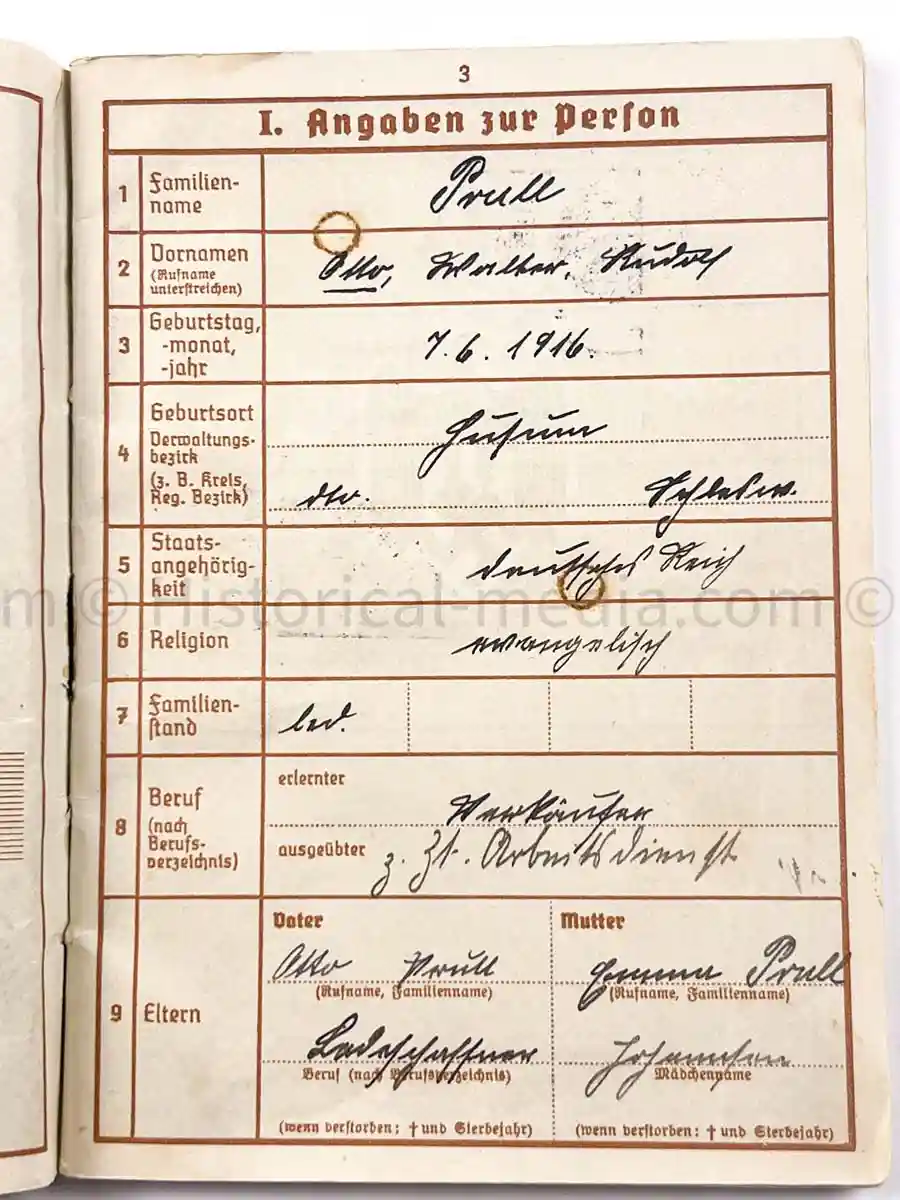 3
I. Angaben zur Person
1 Familien-
name
Prull
2 Vornamen
(Rufname
unterstreichen)
Otto, Walter, Rudolf
3 Geburtstag,
-monat,
-jahr
7. 6. 1916.
4 Geburtsort
Verwaltungs-
bezirk
(z. B. Kreis,
Reg. Bezirk)
Husum
dto. Schlesw.
5 Staats-
angehörig-
keit
deutsches Reich
m © Historical-media.com ©
6 Religion
evangelisch
7 Familien-
stand
led.
8 Beruf
(nach
Berufs-
verzeichnis)
erlernter
Verkäufer
ausgeübter
z. Zt. Arbeitsdienst
9 Eltern
Vater
Otto Prull
(Rufname, Familienname)
Ladeschaffner
Beruf (nach Berufsverzeichnis)
(wenn verstorben: † und Sterbejahr)
Mutter
Emma Prull
(Rufname, Familienname)
Johannsen
Mädchenname
(wenn verstorben: † und Sterbejahr)